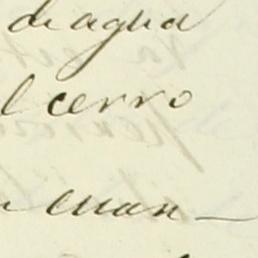 de agua
l cerro
cuan-